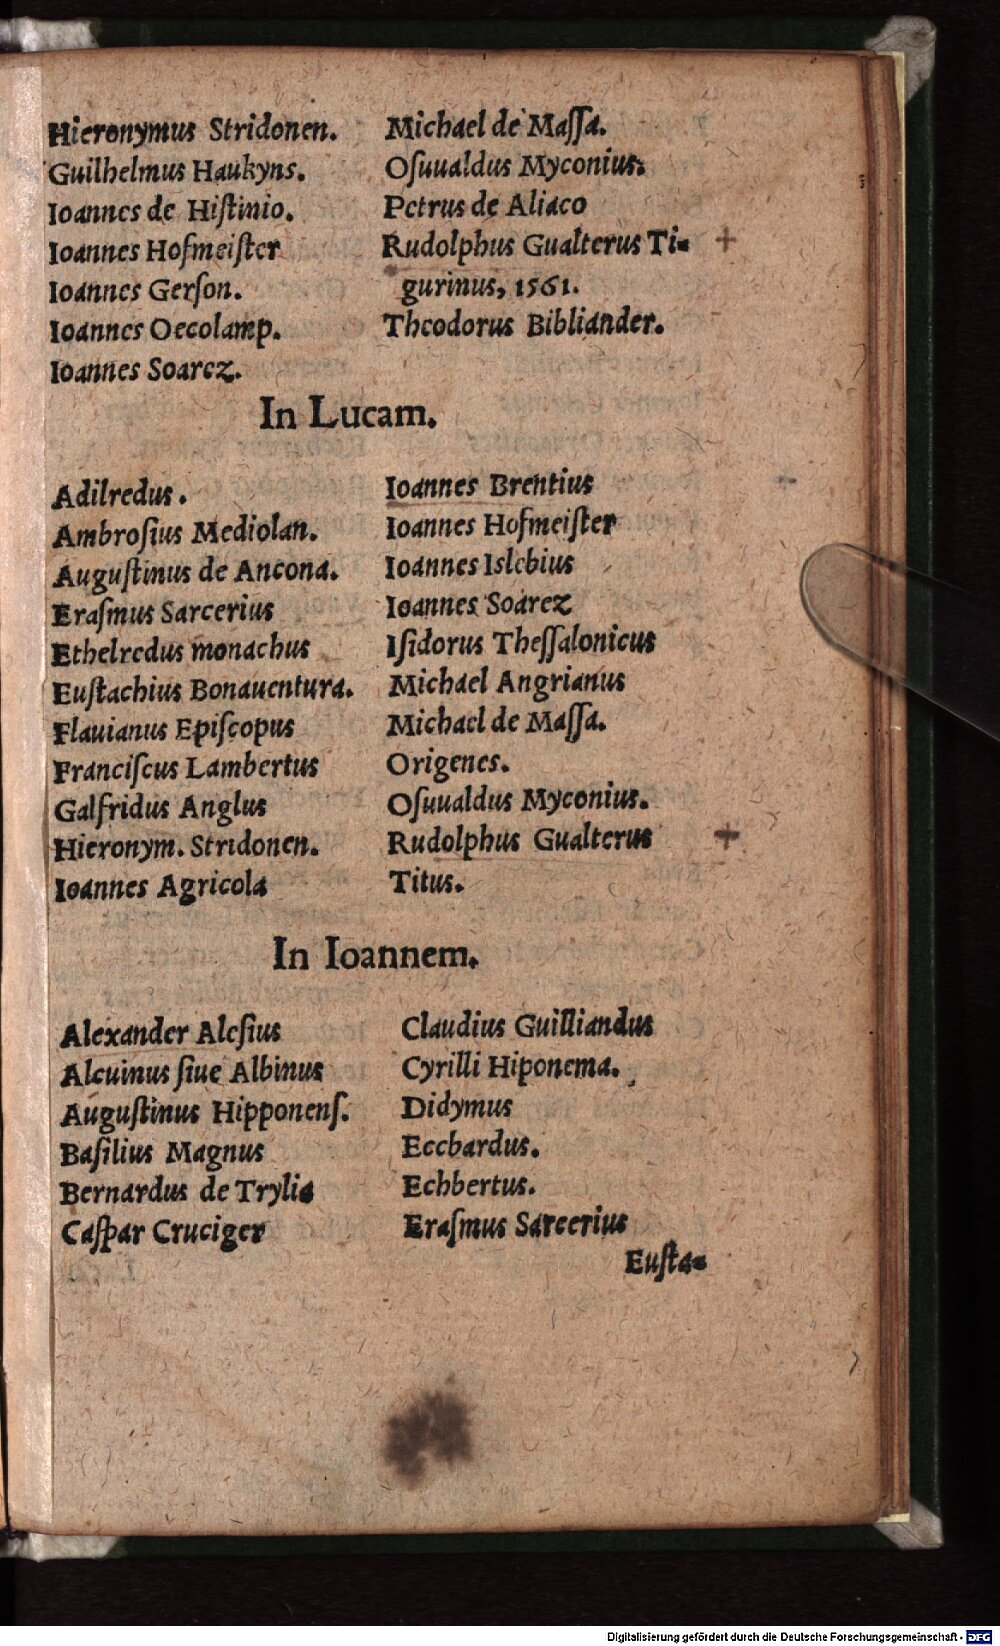 Hieronymus Stridonen.
Guilhelmus Haukyns.
Ioannes de Hiſtinio.
Ioannes Hofmeiſter
Ioannes Gerſon.
Ioannes Oecolamp.
Ioannes Soarez.
Michael de Maſſa.
Oſuualdus Myconius.
Petrus de Aliaco
Rudolphus Gualterus Ti-
gurinus, 1561.
Theodorus Bibliander.
In Lucam.
Adilredus.
Ambroſius Mediolan.
Auguſtinus de Ancona.
Eraſmus Sarcerius
Ethelredus monachus
Euſtachius Bonauentura.
Flauianus Epiſcopus
Franciſcus Lambertus
Galfridus Anglus
Hieronym. Stridonen.
Ioannes Agricola
Ioannes Brentius
Ioannes Hofmeiſter
Ioannes Islebius
Ioannes Soarez
Iſidorus Theſſalonicus
Michael Angrianus
Michael de Maſſa.
Origenes.
Oſuualdus Myconius.
Rudolphus Gualterus
Titus.
In Ioannem.
Alexander Aleſius
Alcuinus ſiue Albinus
Auguſtinus Hipponenſ.
Baſilius Magnus
Bernardus de Trylia
Caſpar Cruciger
Claudius Guilliandus
Cyrilli Hiponema.
Didymus
Eccbardus.
Echbertus.
Eraſmus Sarcerius
Euſta-
Digitalisierung gefördert durch die Deutsche Forschungsgemeinschaft - DFG